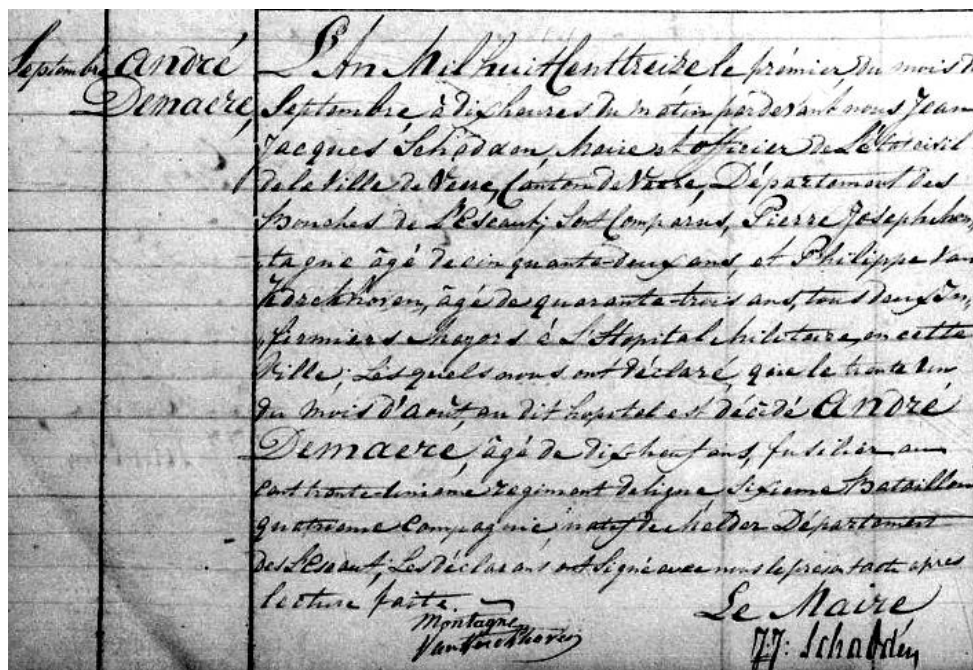 Septembre
André
Demaere,
L'An Mil huit Cent treize le prémier du mois de
Septembre à dix heures du matin pardevant nous Jean
Jacques Schadden, Maire et officier de L'état civil
de la Ville de Veere, Canton de Veere, Département des
Bouches de L'Escaut; Sont Comparus, Pierre Joseph Mon,
,tagne âgé de cinquante-deux ans, et Philippe Van
Kerckhoven, âgé de quarante-trois ans, tous deux In,
,firmiers Majors à L'Hopital Militaire, en cette
Ville; Lesquels nous ont déclaré, que le trente un
du mois d'août, au dit hopital est décidé André
Demaere, âgé de dix neuf ans, fusilier au
cent trente-unième régiment de ligne Sixieme Bataillon
quatrieme Compagnie, natif de Melder Département
des L'Escaut; Les déclarans ont signé avec nous le présent acte après
lecture faite.
Montagne
Van Kerckhoven
Le Maire
J: J: Schadden